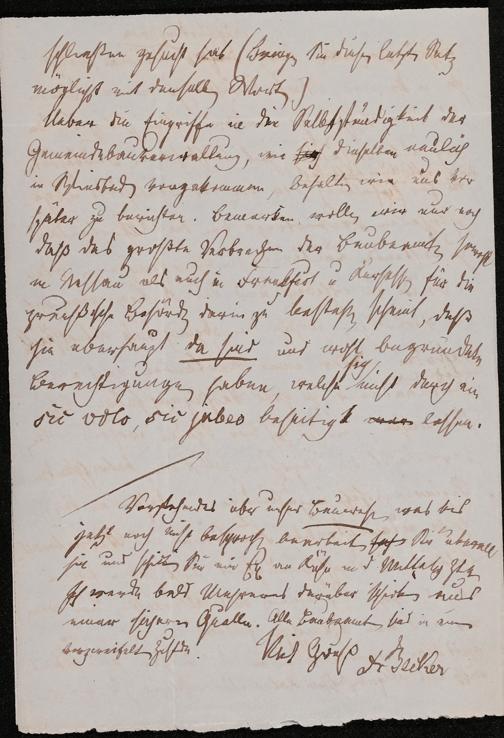 schließen gesucht hat (Bringen Sie diesen letzten Satz
möglichst mit denselben Worten)
Ueber die Eingriffe in die Selbstständigkeit der
Gemeindebauverwaltung, wie dieselben neulich
in vorgekommen, behalten wir uns vor
später zu berichten. Bemerken wollen wir nur noch
daß das größte Verbrechen der Baubeamten sowohl
in Nassau als auch in Frankfurt u Kurhessen für die
preußische Behörde darin zu bestehen scheint, daß
sie überhaupt da sind und wohl begründete
Berechtigungen haben, welche sich nicht durch ein
sic volo, sic jubeo beseitigt lassen.
Vorstehendes über unser Bauwesen was bis
jetzt noch nicht besprochen bearbeiten Sie überall
hin und schicken Sie ein Ex an
Ich werde bald Mehreres darüber schicken aus
einer sicheren Quelle. Alle Baubeamten sind in einem
verzweifelten Zustande. Viele Grüße
Dr Becker